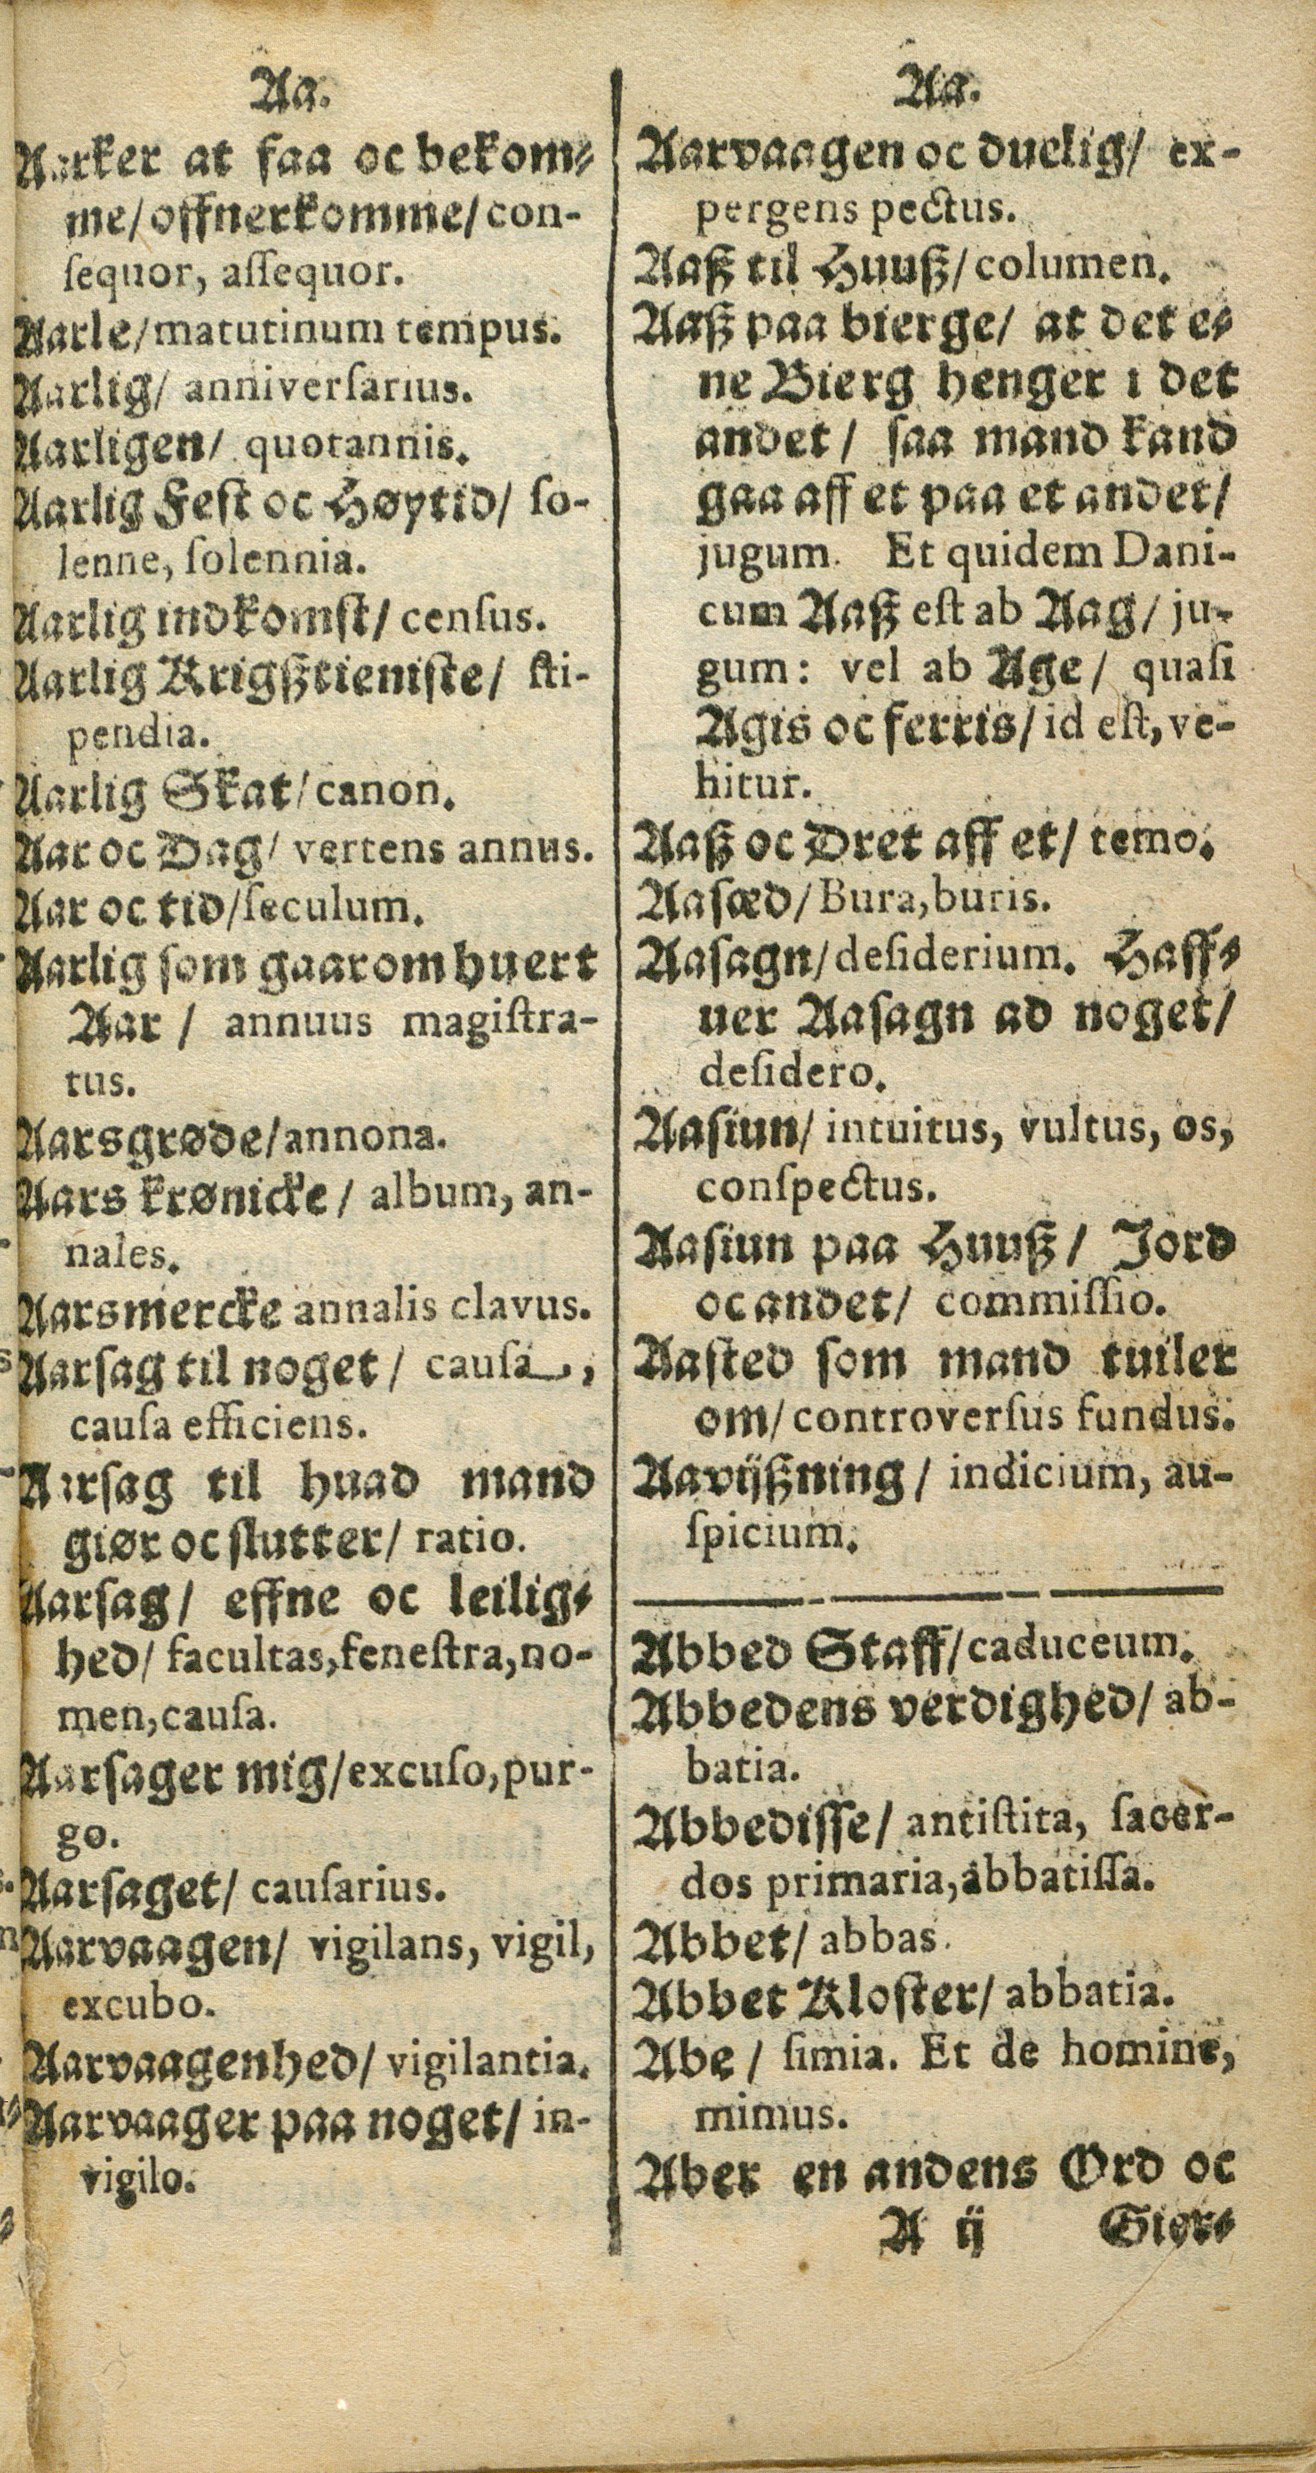 Aa.
Aarker at faa oc bekom⸗
me/ offnerkomme/ con-
ſequor, aſſequor.
Aarle/ matutinum tempus.
Aarlig/ anniverſarius.
Aarligen/ quotannis.
Aarlig Feſt oc Høytid/ ſo-
lenne, ſolennia.
Aarlig indkomſt/ cenſus.
Aarlig Krigßtieniſte/ ſti-
pendia.
Aarlig Skat/ canon.
Aar oc Dag/ vertens annus.
Aar oc tid/ ſeculum.
Aarlig ſom gaar om huert
Aar / annuus magiſtra-
tus.
Aarsgrøde/ annona.
Aars krønicke / album, an-
nales.
Aarsmercke annalis clavus.
Aarſag til noget / cauſa,
cauſa efficiens.
Aarſag til huad mand
giør oc ſlutter/ ratio.
Aarſag/ effne oc leilig⸗
hed/ facultas, feneſtra, no-
men, cauſa.
Aarſager mig/ excuſo, pur-
go.
Aarſaget/ cauſarius.
Aarvaagen/ vigilans, vigil,
excubo.
Aarvaagenhed/ vigilantia.
Aarvaager paa noget/ in-
vigilo.
Aa.
Aarvaagen oc duelig/ ex-
pergens pectus.
Aaß til Huuß/ columen.
Aaß paa bierge/ at det e⸗
ne Bierg henger i det
andet / ſaa mand kand
gaa aff et paa et andet/
jugum. Et quidem Dani-
cum Aaß eſt ab Aag/ ju-
gum: vel ab Age / quaſi
Agis oc ferris/ id eſt, ve-
hitur.
Aaß oc Dret aff et/ temo.
Aaſæd/ Bura, buris.
Aaſagn/ deſiderium. Haff⸗
uer Aaſagn ad noget/
deſidero.
Aaſiun/ intuitus, vultus, os,
conſpectus.
Aaſiun paa Huuß / Jord
oc andet/ commiſſio.
Aaſted ſom mand tuiler
om/ controverſus fundus.
Aavijßning / indicium, au-
ſpicium.
Abbed Staff/ caduceum.
Abbedens verdighed/ ab-
batia.
Abbediſſe/ antiſtita, ſacer-
dos primaria, abbatiſſa.
Abbet/ abbas.
Abbet Kloſter/ abbatia.
Abe / ſimia. Et de homine,
mimus.
Aber en andens Ord oc
A ij Gier⸗